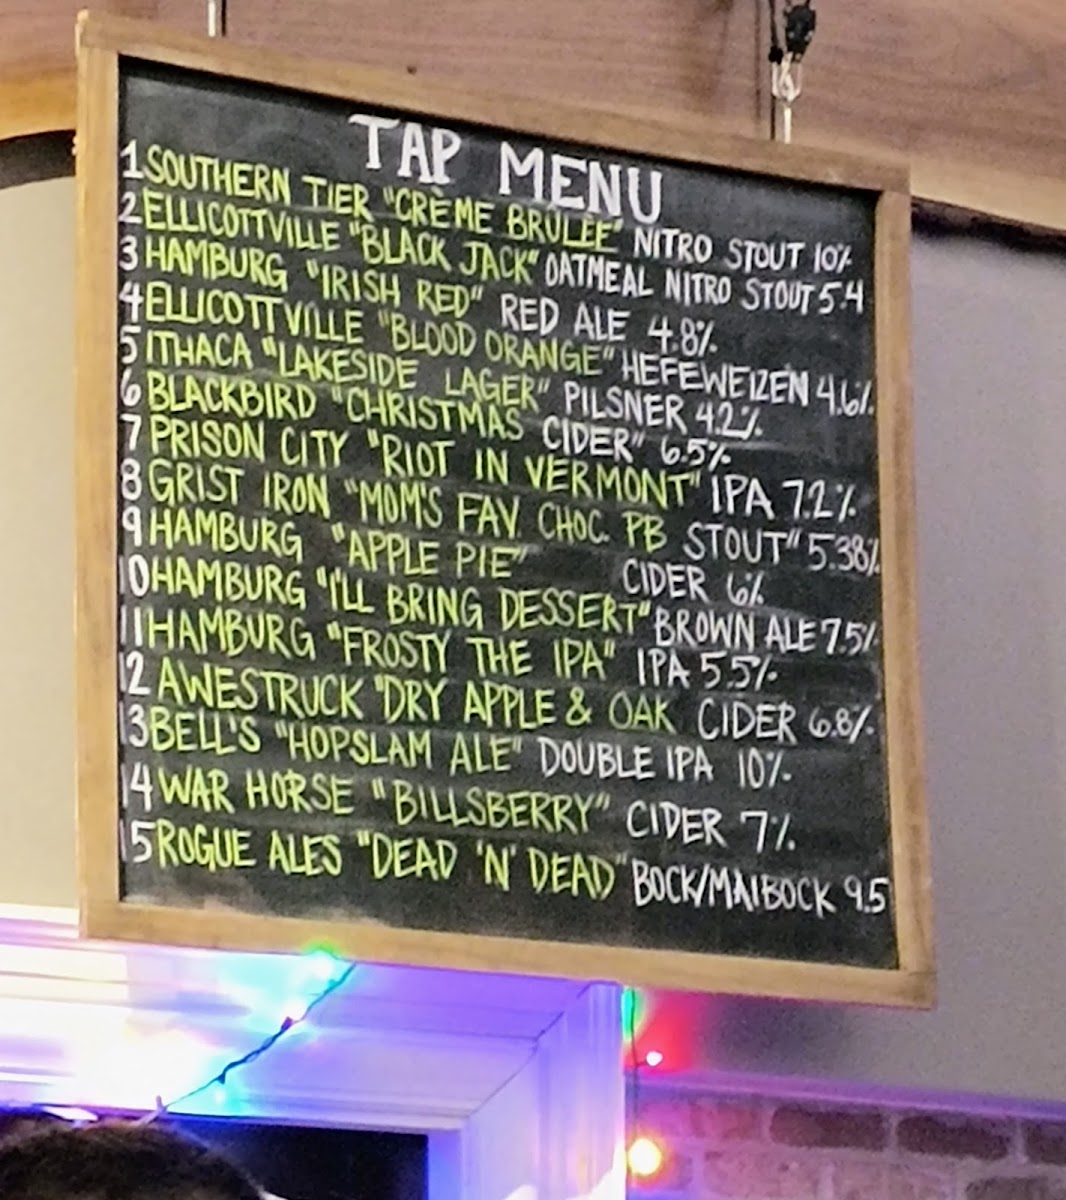 TAP MENU
1 SOUTHERN TIER "CRÈME BRÛLÉE" NITRO STOUT 10%
2 ELLICOTTVILLE "BLACK JACK" OATMEAL NITRO STOUT 5.4
3 HAMBURG "IRISH RED" RED ALE 4.8%
4 ELLICOTTVILLE "BLOOD ORANGE" HEFEWEIZEN 4.6%
5 ITHACA "LAKESIDE LAGER" PILSNER 4.2%
6 BLACKBIRD "CHRISTMAS CIDER" 6.5%
7 PRISON CITY "RIOT IN VERMONT" IPA 7.2%
8 GRIST IRON "MOM'S FAV. CHOC. PB STOUT" 5.38%
9 HAMBURG "APPLE PIE" CIDER 6%
10 HAMBURG "I'LL BRING DESSERT" BROWN ALE 7.5%
11 HAMBURG "FROSTY THE IPA" IPA 5.5%
12 AWESTRUCK "DRY APPLE & OAK CIDER 6.8%
13 BELL'S "HOPSLAM ALE" DOUBLE IPA 10%
14 WAR HORSE "BILLSBERRY" CIDER 7%
15 ROGUE ALES "DEAD 'N' DEAD" BOCK/MAIBOCK 9.5